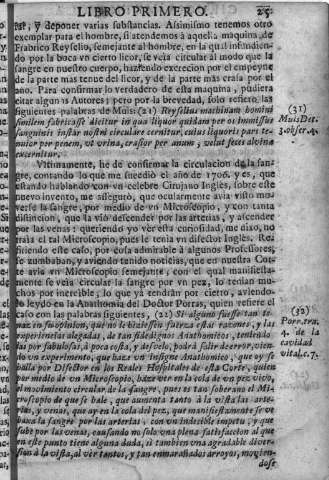 LIBRO PRIMERO. 25
rar, y deponer varias substancias. Assimismo tenemos otro
exemplar para el hombre, si atendemos à aquella maquina, de
Frabrico Reyselio, semejante al hombre, en la qual infundien-
do por la boca vn cierto licor, se veìa circular al modo que la
sangre en nuestro cuerpo, haziendo excrecion por el empeyne
de la parte mas tenue del licor, y de la parte mas crasa por el
ano. Para confirmar lo verdadero desta maquina, pudiera
citar algunos Autores; pero por la brevedad, solo referiré, las
siguientes palabras de Muis: (21) Reyselus machinam homini
similem fabricasse dicitur in qua liquor quidam per os immissus
sanguinis instar nostri circulare cernitur, cuius liquoris pars te-
nuior per penem, vt vrina, crasior per anum, velut feces alvinæ
excernitur.
(31)
Muis Dec.
3. obser. 4.
Vltimamente, he de confirmar la circulacion de la san-
gre, contando lo que me sucediò el año de 1706. y es, que
estando hablando con vn celebre Cirujano Inglès, sobre este
nuevo invento, me assegurò, que ocularmente avia visto mo-
verse la sangre, por medio de vn Microscopio, y con tanta
distincion, que la viò descender por las arterias, y ascender
por las venas: queriendo yo vèr esta curiosidad, me dixo, no
traìa el tal Microscopio, pues le tenia vn disector Inglès. Re-
firiendo este caso, por cosa admirable à algunos Professores,
se zumbaban, y aviendo tenido noticias, que en nuestra Cor-
te avia vn Microscopio semejante, con el qual manifiesta-
mente se veìa circular la sangre por vn pez, lo tenian mu-
chos por increible, lo que yà tendràn por cierto, aviendo-
lo leydo en la Anathomia del Doctor Porras, quien refiere el
caso con las palabras siguientes, (22) Si alguno fuesse tan te-
naz en su opinion, que no le hiziessen fuerza estas razones, y las
experiencias alegadas, de tan fidedignos Anathomicos, teniendo-
las por fabulosas, ò poca costa, y desvelo, podrà salir de error, vien-
do vn experimento, que haze vn insigne Anathomico, que oy se
halla por Disector en los Reales Hospitales de esta Corte, quien
por medio de vn Microscopio, haze ver en la cola de vn pez vivo,
el movimiento circular de la sangre, pues es tan soberano el Mi-
croscopio de que se vale, que aumenta tanto à la vista las arte-
rias, y venas, que ay en la cola del pez, que manifiestamente se ve
baxa la sangre por las arterias, con vn indecible impetu, y que
sube por las venas, causando no solo vna plena satisfaccion al que
en este punto tiene alguna duda, si tambien vna agradable diver-
sion à la vista, al ver tantos, y tan enmarañados arroyos, movien-
dose
(32)
Porr. trat.
4. de la
cavidad
vital, c. 7.